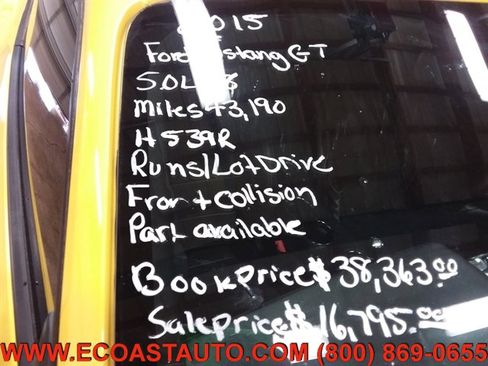 2015
Ford Mustang GT
5.0L V8
Miles 43,190
H539R
Runs/Lot Drive
Front collision
Part available
Book price $38,363.00
Sale price $16,795.00
WWW.ECOASTAUTO.COM (800) 869-0655